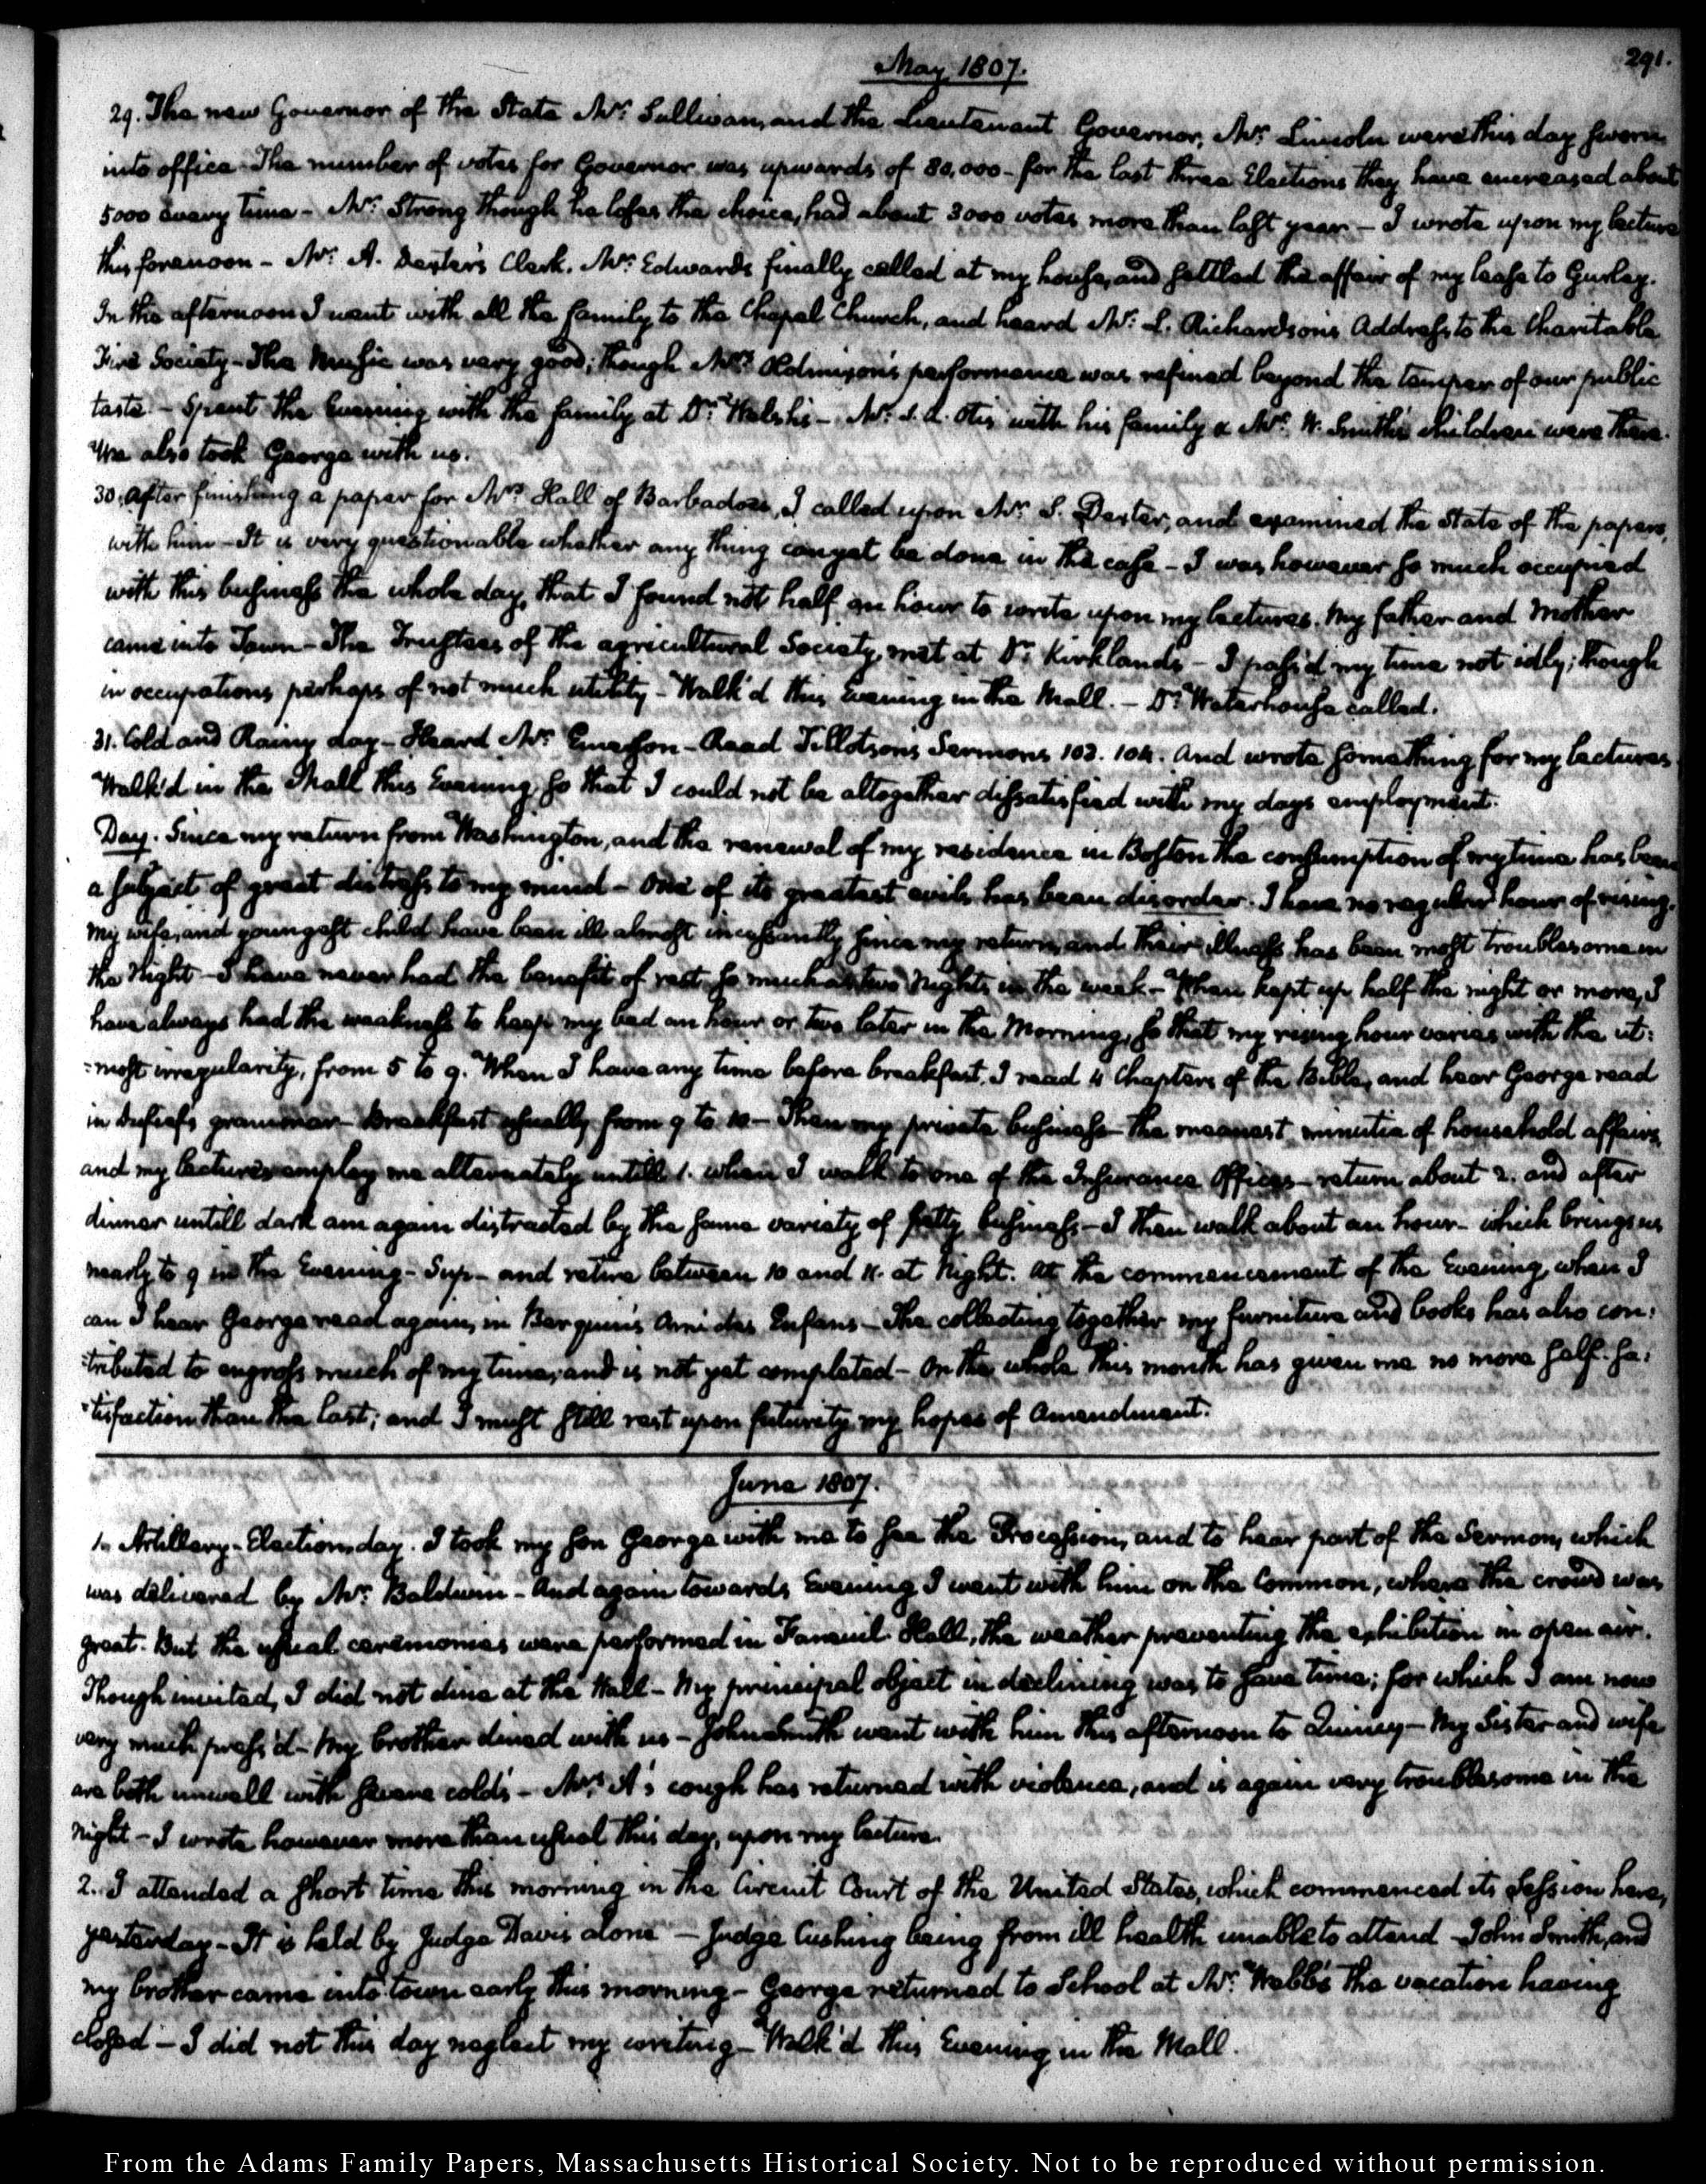 May 1807.
291.
29. The new Governor of the State Mr. Sullivan, and the Lieutenant Governor, Mr. Lincoln were this day sworn
into office. The number of votes for Governor was upwards of 80,000 - for the last three Elections they have encreased about
5000 every time - Mr. Strong though he loses the choice, had about 3000 votes more than last year - I wrote upon my lecture
this forenoon - Mr. A. Dexter's Clerk, Mr. Edwards finally called at my house, and settled the affair of my lease to Gurley.
In the afternoon I went with all the family to the Chapel Church, and heard Mr. L. Richardson's Address to the Charitable
Fire Society - The Music was very good; though Mrs. Oldmixon's performance was refined beyond the temper of our public
taste - Spent the Evening with the family at Dr. Welsh's - Mr. S. A. Otis with his family & Mr. W. Smith's children were there.
We also took George with us.
30. After finishing a paper for Mrs. Hall of Barbadoes, I called upon Mr. S. Dexter, and examined the state of the papers,
with him - It is very questionable whether any thing can yet be done in the case - I was however so much occupied
with this business the whole day, that I found not half an hour to write upon my lectures. My father and Mother
came into Town - The Trustees of the agricultural Society, met at Dr. Kirkland's - I pass'd my time not idly; though
in occupations perhaps of not much utility - Walk'd this Evening in the Mall. - Dr. Waterhouse called.
31. Cold and Rainy day - Heard Mr. Emerson - Read Tillotson's Sermons 103. 104. And wrote something for my lectures
Walk'd in the Mall this Evening, so that I could not be altogether dissatisfied with my days employment.
Day. Since my return from Washington, and the renewal of my residence in Boston the consumption of my time has been
a subject of great distress to my mind - One of its greatest evils has been disorder. I have no regular hour of rising.
My wife, and youngest child have been ill almost incessantly since my return, and their illness has been most troublesome in
the Night - I have never had the benefit of rest so much as two Nights in the week - When kept up half the night or more, I
have always had the weakness to keep my bed an hour or two later in the Morning, so that my rising hour varies with the ut:
:most irregularity, from 5 to 9. When I have any time before breakfast, I read 4 Chapters of the Bible, and hear George read
in Dufief's grammar - Breakfast usually from 9 to 10 - Then my private business - the meanest minutia of household affairs,
and my lectures employ me alternately untill 1. when I walk to one of the Insurance Offices - return about 2. and after
dinner untill dark am again distracted by the same variety of petty business - I then walk about an hour - which brings us
nearly to 9 in the Evening - Sup - and retire between 10 and 11. at Night. At the commencement of the Evening, when I
can I hear George read again, in Berquin's Ami des Enfans - The collecting together my furniture and books has also con:
:tributed to engross much of my time, and is not yet completed - On the whole this month has given me no more self-sa:
:tisfaction than the last; and I must still rest upon futurity my hopes of Amendment.
June 1807.
1. Artillery-Election, day. I took my son George with me to see the Procession, and to hear part of the Sermon, which
was delivered by Mr. Baldwin - And again towards Evening I went with him on the Common, where the crowd was
great. But the usual ceremonies were performed in Faneuil Hall, the weather preventing the exhibition in open air.
Though invited, I did not dine at the Hall - My principal object in declining was to save time; for which I am now
very much press'd - My brother dined with us - John Smith went with him this afternoon to Quincy - My Sister and wife
are both unwell with severe colds - Mrs. A's cough has returned with violence, and is again very troublesome in the
Night - I wrote however more than usual this day, upon my lecture.
2. I attended a short time this morning in the Circuit Court of the United States, which commenced its Session here,
yesterday - It is held by Judge Davis alone - Judge Cushing being from ill health unable to attend - John Smith, and
my brother came into town early this morning - George returned to School at Mr. Webb's the vacation having
closed - I did not this day neglect my writing - Walk'd this Evening in the Mall.
From the Adams Family Papers, Massachusetts Historical Society. Not to be reproduced without permission.